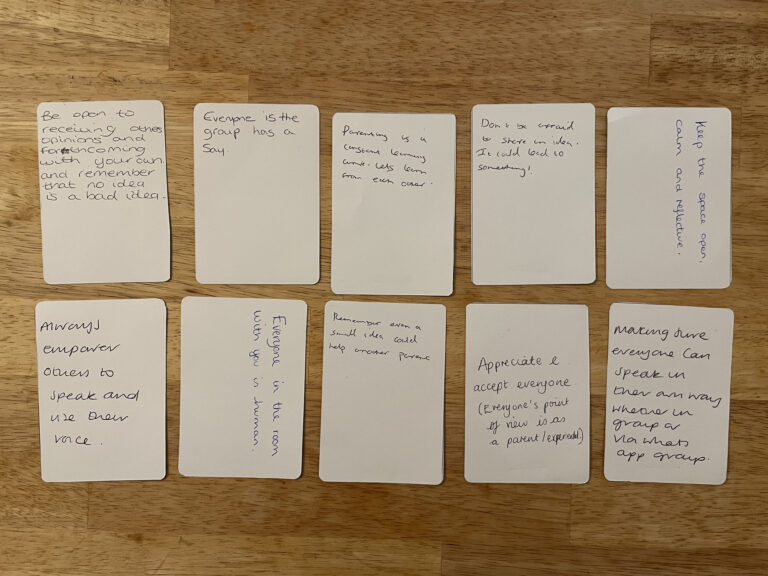 Be open to
receiving others
opinions and
forthcoming
with your own
and remember
that no idea
is a bad idea.
Everyone is the
group has a
say.
Parenting is a
constant learning
curve. Lets learn
from each other.
Don't be afraid
to share an idea.
It could lead to
something!
Keep the space open,
calm and reflective.
Always
empower
others to
speak and
use their
voice.
Everyone in the room
with you is human.
Remember even a
small idea could
help another parent
Appreciate &
accept everyone
(Everyone's point
of view is as
a parent/
Making sure
everyone can
speak in
their own way
whether in
group or
via whats
app group.